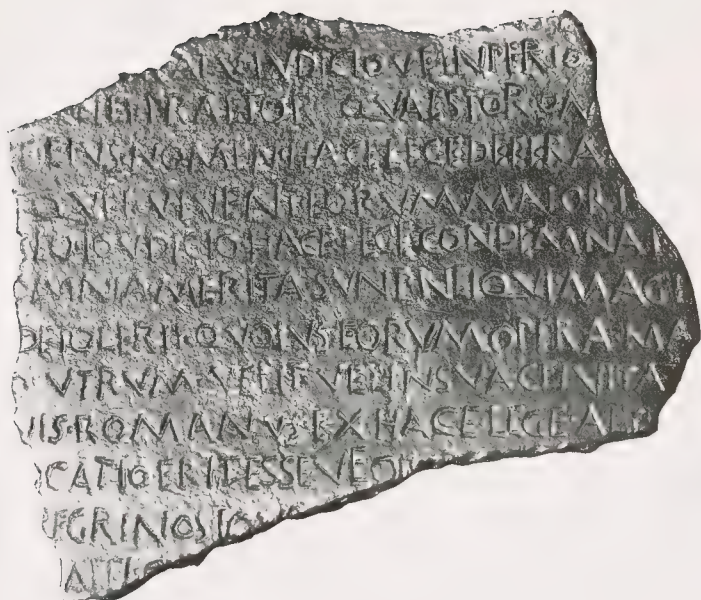 IVDICIOVE INPERIO
PRAETOR QVAESTOR
EIVS·NOMEN HACE LEGE DEFERRA
QVEI VIVENT EORVM MAIORI
IOVDICIO HACE LEGE CONDEMNAT
OMNIA MERITA SVN NEIQVI MAG
DETOLERIT QVOIVS EORVM OPERA MA
VTRVM VELIT VEL IN SVA CEIVITA
VIS·ROMANVS EX HACE LEGE AL
OCATIO ERIT ESSEVE
EGRINOS IO